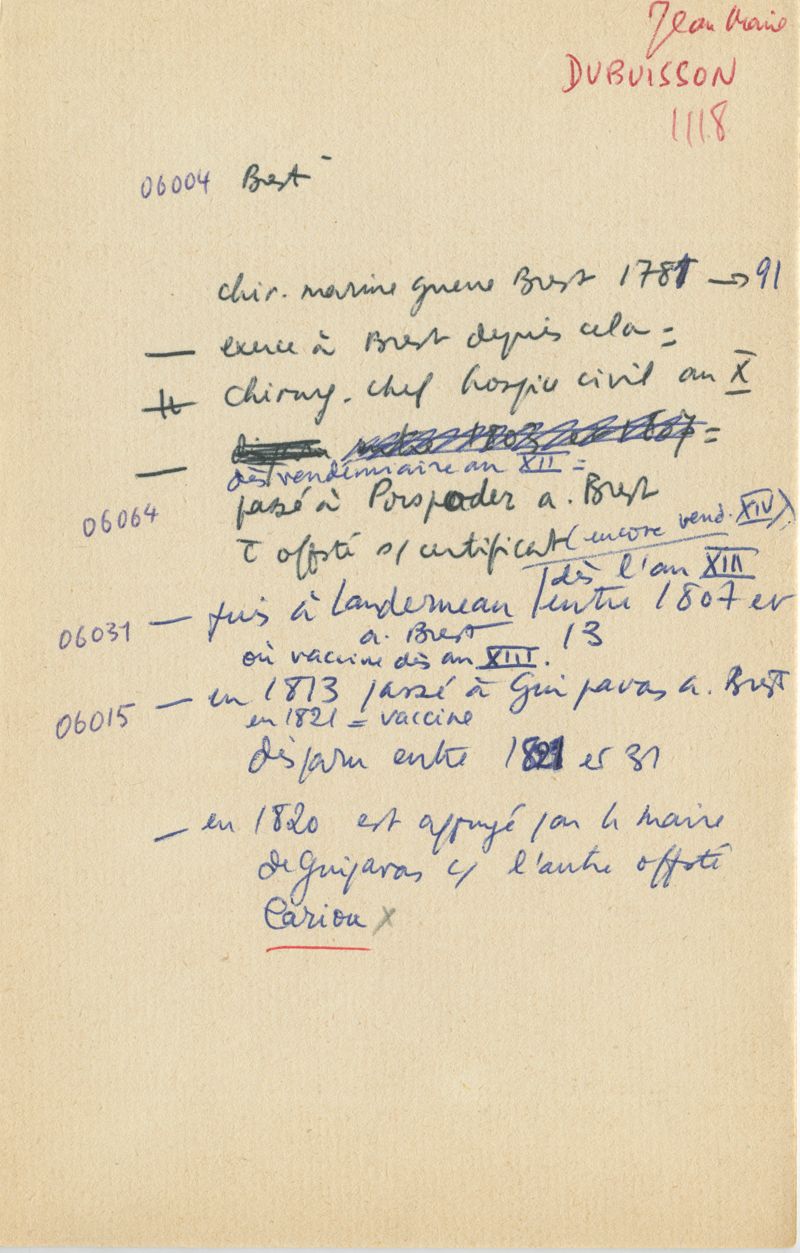 Jean Marie
DUBUISSON
1118
06004 Brest
chir. marine guerre Brest 1781 → 91
— exerce à Brest depuis cela =
chirurg. chef hospice civil an X
1803 1807 =
— dès vendémiaire an XII =
06064 passé à Porspoder a. Brest
offsté s/ certificat (encore vend. XIV)
dès l'an XIII
06031 — puis à Landerneau entre 1807 et
a. Brest 13
où vaccine dès an XIII.
06015 — en 1813 passé à Guipavas a. Brest
en 1821 = vaccine
disparu entre 1821 et 31
— en 1820 est appuyé par le maire
de Guipavas c/ l'autre offsté
Cariou x